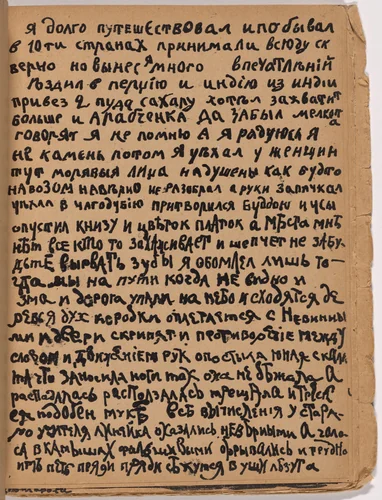 Я долго путешествовал и побывал
в 10ти странах принимали всюду ск
верно но вынес я много впечатлѣнiй
ѣздил в персiю и индiю из индiи
привез 2 пуда сахару хотѣл захватит
больше и Арабченка да забыл мелкота
говорят я не помню а я радуюсь я
не камень потом я уѣхал у женщин
тут морявыя лица надушены как будто
на возом навѣрно не разобрал а руки запачкал
уѣхал в притворился Буддою и усы
опустил книзу и цвѣток платок а мѣста мнѣ
нѣт все кто то и шепчет не забу
дьте вырвать зубы я обомлел лишь то
гда мы на пути когда не видно и
яма и дорога упали на небо и сходятся де
ревья дух коробки оплетается с невинны
ми двери скрипят и противорѣчiе между
словом и движенiем рук опостыла юная
та что заносила ноги так она не бѣжала а
расползлась расползлась трещала и
ея подобен мукѣ все вычисленiя у стара
го учителя оказались невѣрными а
в камышах обрывались и трудно
пѣть пряди в уши